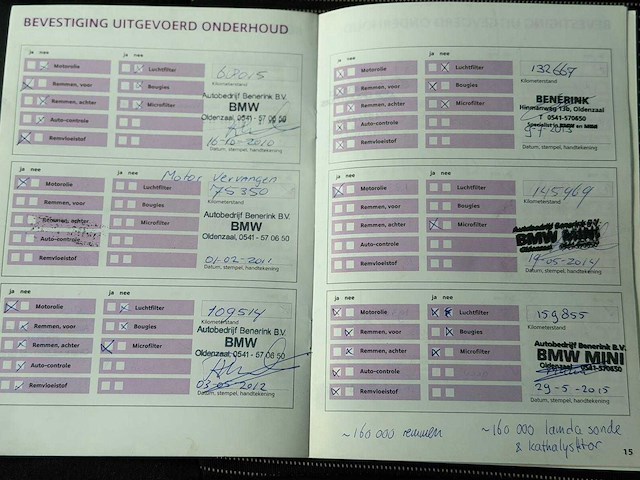 BEVESTIGING UITGEVOERD ONDERHOUD
ja nee
ja nee
Motorolie
Luchtfilter
Remmen, voor
Bougies
Remmen, achter
Microfilter
Auto-controle
Remvloeistof
Kilometerstand
Autobedrijf Benerink B.V.
BMW
Oldenzaal, 0541 - 57 06 50
16-10-2010
Datum, stempel, handtekening
Motor vervangen
ja nee
ja nee
Motorolie
Luchtfilter
Remmen, voor
Bougies
Remmen, achter
Microfilter
Auto-controle
Remvloeistof
75350
Kilometerstand
Autobedrijf Benerink B.V.
BMW
Oldenzaal, 0541 - 57 06 50
01-02-2011
Datum, stempel, handtekening
ja nee
ja nee
Motorolie
Luchtfilter
Remmen, voor
Bougies
Remmen, achter
Microfilter
Auto-controle
Remvloeistof
109514
Kilometerstand
Autobedrijf Benerink B.V.
BMW
Oldenzaal, 0541 - 57 06 50
03-05-2012
Datum, stempel, handtekening
ja nee
ja nee
Motorolie
Luchtfilter
Remmen, voor
Bougies
Remmen, achter
Microfilter
Auto-controle
Remvloeistof
132667
Kilometerstand
BENERINK
Hinmanweg 13b, Oldenzaal
T 0541-570650
Specialist in BMW en MINI
9-7-2013
Datum, stempel, handtekening
ja nee
ja nee
Motorolie
Luchtfilter
Remmen, voor
Bougies
Remmen, achter
Microfilter
Auto-controle
Remvloeistof
145969
Kilometerstand
Autobedrijf Benerink B.V.
BMW MINI
19-05-2014
Datum, stempel, handtekening
ja nee
ja nee
Motorolie
Luchtfilter
Remmen, voor
Bougies
Remmen, achter
Microfilter
Auto-controle
Remvloeistof
159855
Kilometerstand
Autobedrijf Benerink B.V.
BMW MINI
Oldenzaal 0541-570650
29-5-2015
Datum, stempel, handtekening
~160 000 remmen
~160 000 lamda sonde
& kathalysator
15